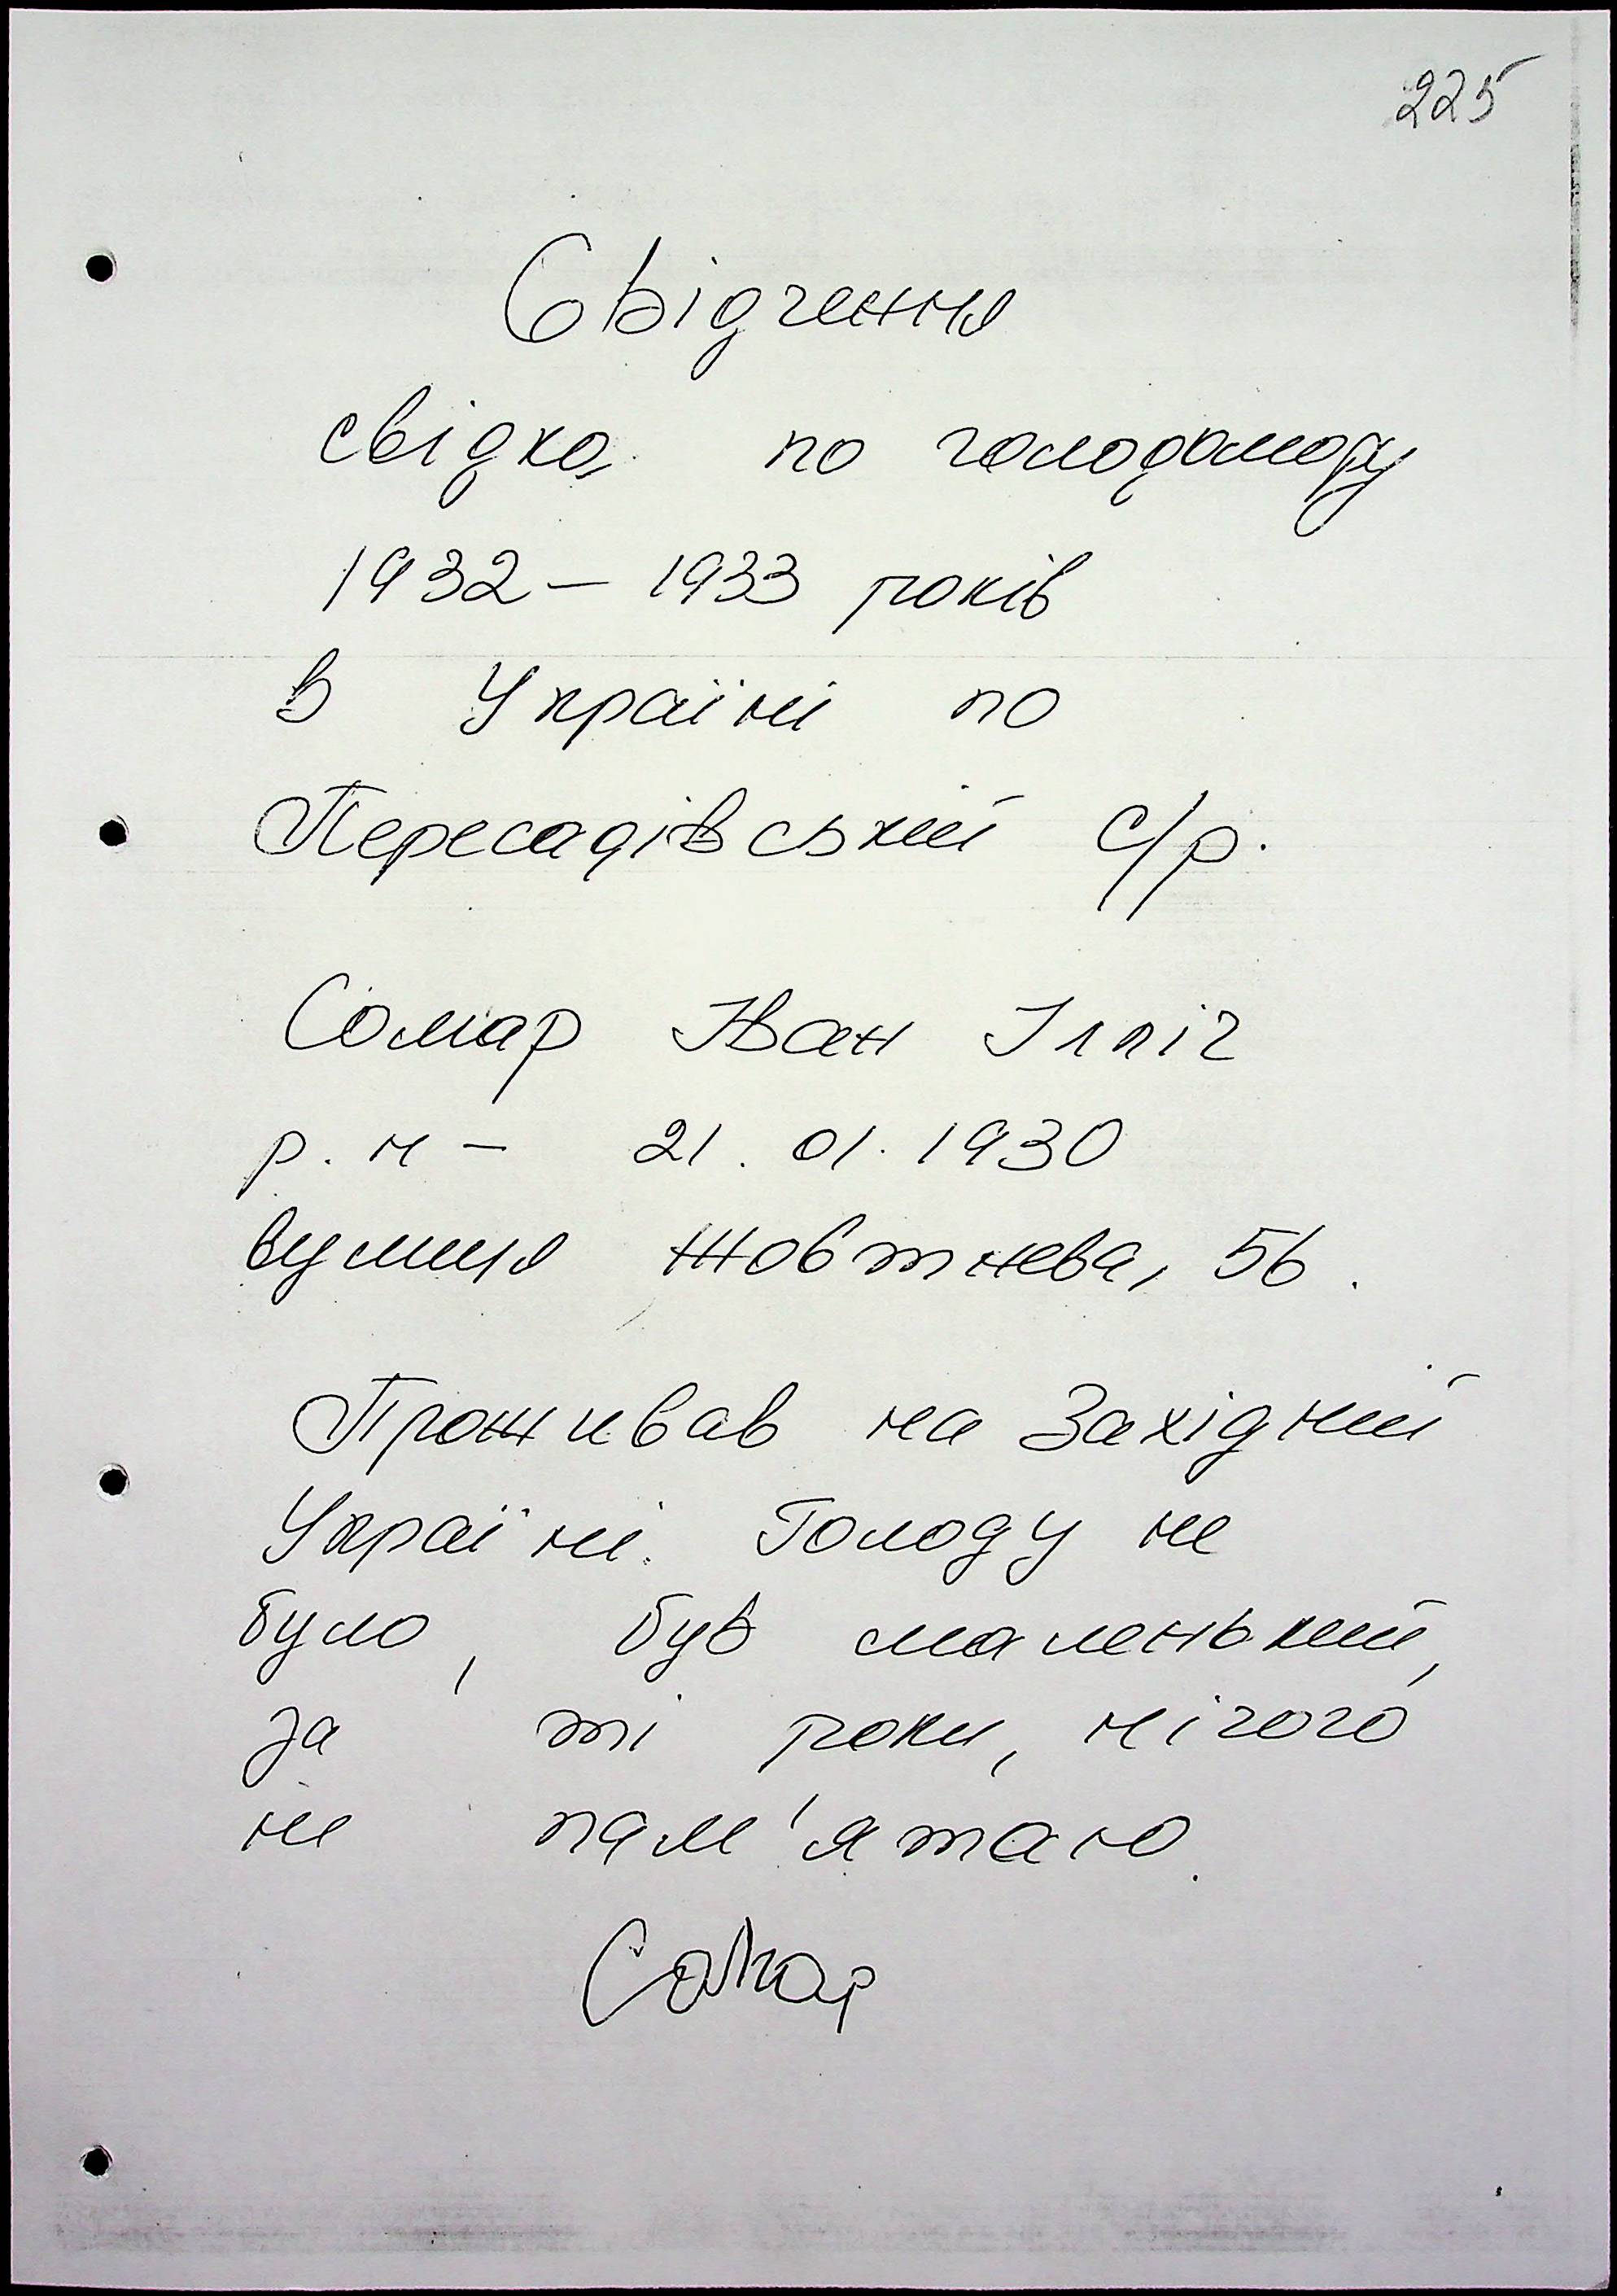 225
Свідчення
свідка по голодомору
1932 – 1933 років
в Україні по
Пересадівській с/р.
Сомар Іван Ілліч
р. н – 21. 01. 1930
вулиця Жовтнева, 56.
Проживав на Західній
Україні. Голоду не
було, був маленький,
за ті роки, нічого
не пам'ятаю.
Сомар